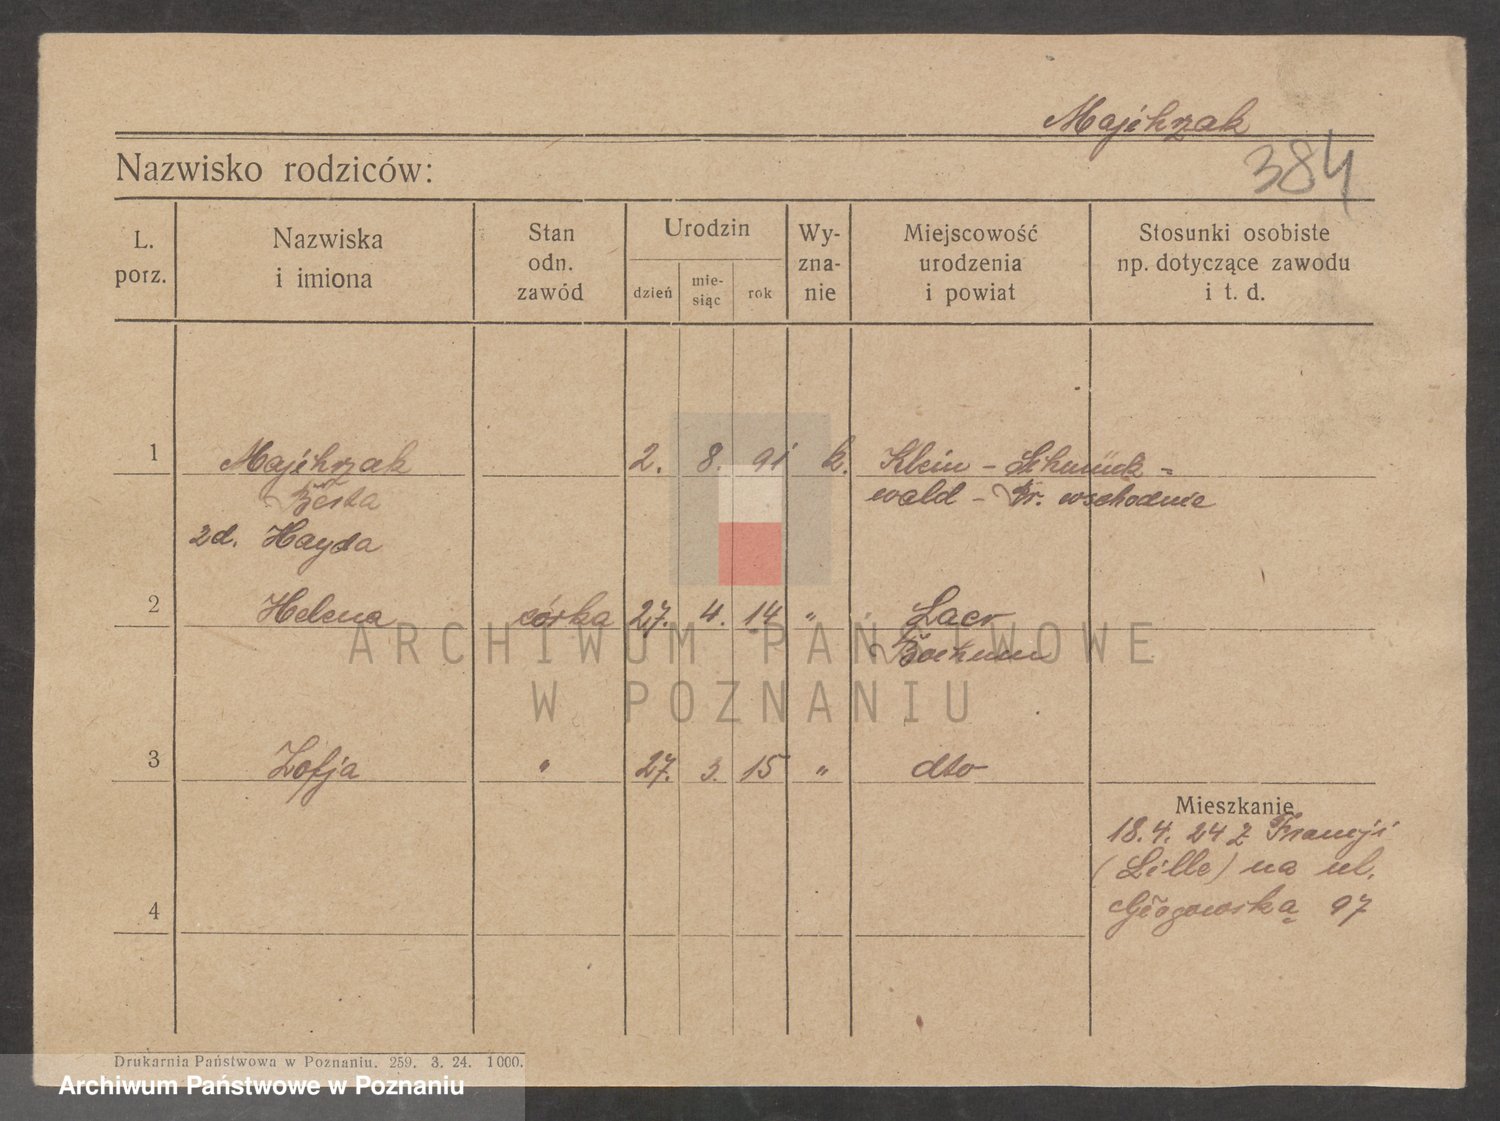 Majchrzak
384
Nazwisko rodziców:
L. porz.
Nazwiska i imiona
Stan odn. zawód
Urodzin
dzień
mie-siąc
rok
Wy-zna-nie
Miejscowość urodzenia i powiat
Stosunki osobiste np. dotyczące zawodu i t. d.
1 Majchrzak 2. 8. 91 k. Klein - Schmück =
Berta wald - Pr. wschodnie
2d. Hayda
2 Helena córka 27. 4. 14 " Laer
Bochum
3 Zofja " 27. 3. 15 " dto
Mieszkanie
18. 4. 24 z Francji
(Lille) na ul.
4 Głogowską 97
ARCHIWUM PAŃSTWOWE
W POZNANIU
Drukarnia Państwowa w Poznaniu. 259. 3. 24. 1000.
Archiwum Państwowe w Poznaniu